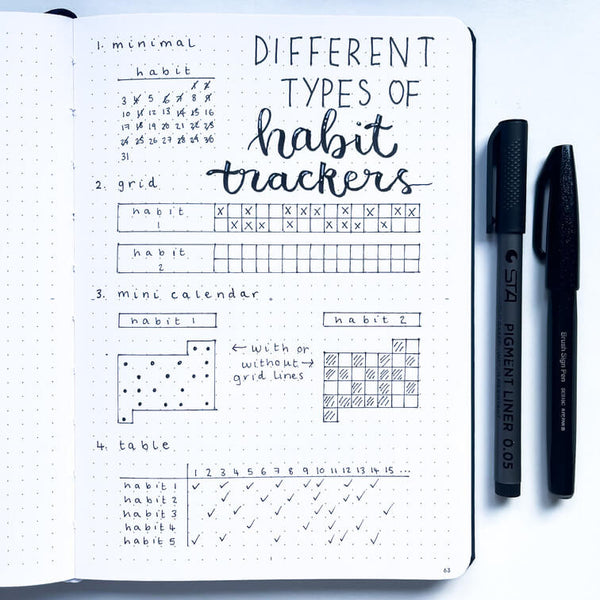 DIFFERENT
TYPES OF
habit
trackers
1. minimal
habit
1 2
3 4 5 6 7 8 9
10 11 12 13 14 15 16
17 18 19 20 21 22 23
24 25 26 27 28 29 30
31
2. grid
habit
1
habit
2
3. mini calendar
habit 1
habit 2
← with or
without →
grid lines
4. table
1 2 3 4 5 6 7 8 9 10 11 12 13 14 15 ...
habit 1
habit 2
habit 3
habit 4
habit 5
63
STA PIGMENT LINER 0.05
Brush Sign Pen